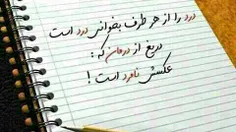 درد را از هر طرف بخوانی درد است
دریغ از درمان که :
عکسش نامرد است !